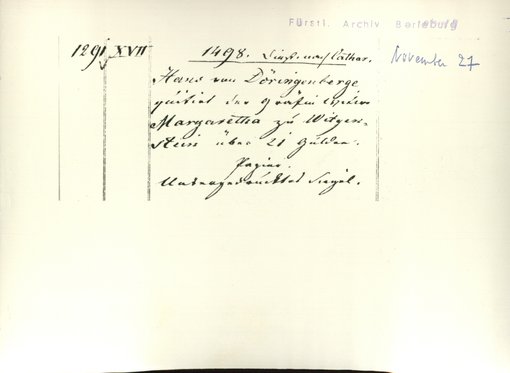 Fürstl. Archiv Berleburg
1291 XVII 1498. Dinst. nach Cathar. November 27
Hans von Döringenberge
quitirt der Gräfin
Margaretha zu Witgen-
stein über 21 Gulden.
Papier.
Untengedrucktes Siegel.